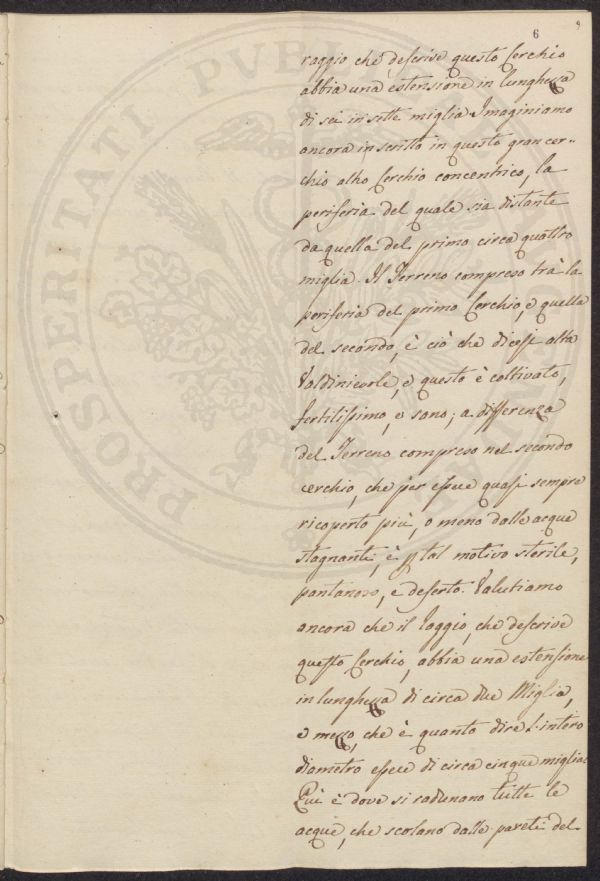 6
9
raggio che descrive questo Cerchio
abbia una estensione in lunghezza
di sei in sette miglia. Imaginiamo
ancora inscritto in questo gran cer-
chio altro Cerchio concentrico, la
periferia del quale sia distante
da quella del primo circa quattro
miglia. Il Terreno compreso trà la
periferia del primo Cerchio, e quella
del secondo, è ciò che dicesi alta
Valdinievole, e questo è coltivato,
fertilissimo, e sano; a differenza
del Terreno compreso nel secondo
cerchio, che per essere quasi sempre
ricoperto più, o meno dalle acque
stagnanti, è p tal motivo sterile,
pantanoso, e deserto. Valutiamo
ancora che il Raggio, che descrive
questo Cerchio, abbia una estensione
in lunghezza di circa due Miglia,
e mezzo, che è quanto dire l'intero
diametro essere di circa cinque miglia:
Qui è dove si radunano tutte le
acque, che scolano dalle pareti del
PROSPERITATI PUBLICAE